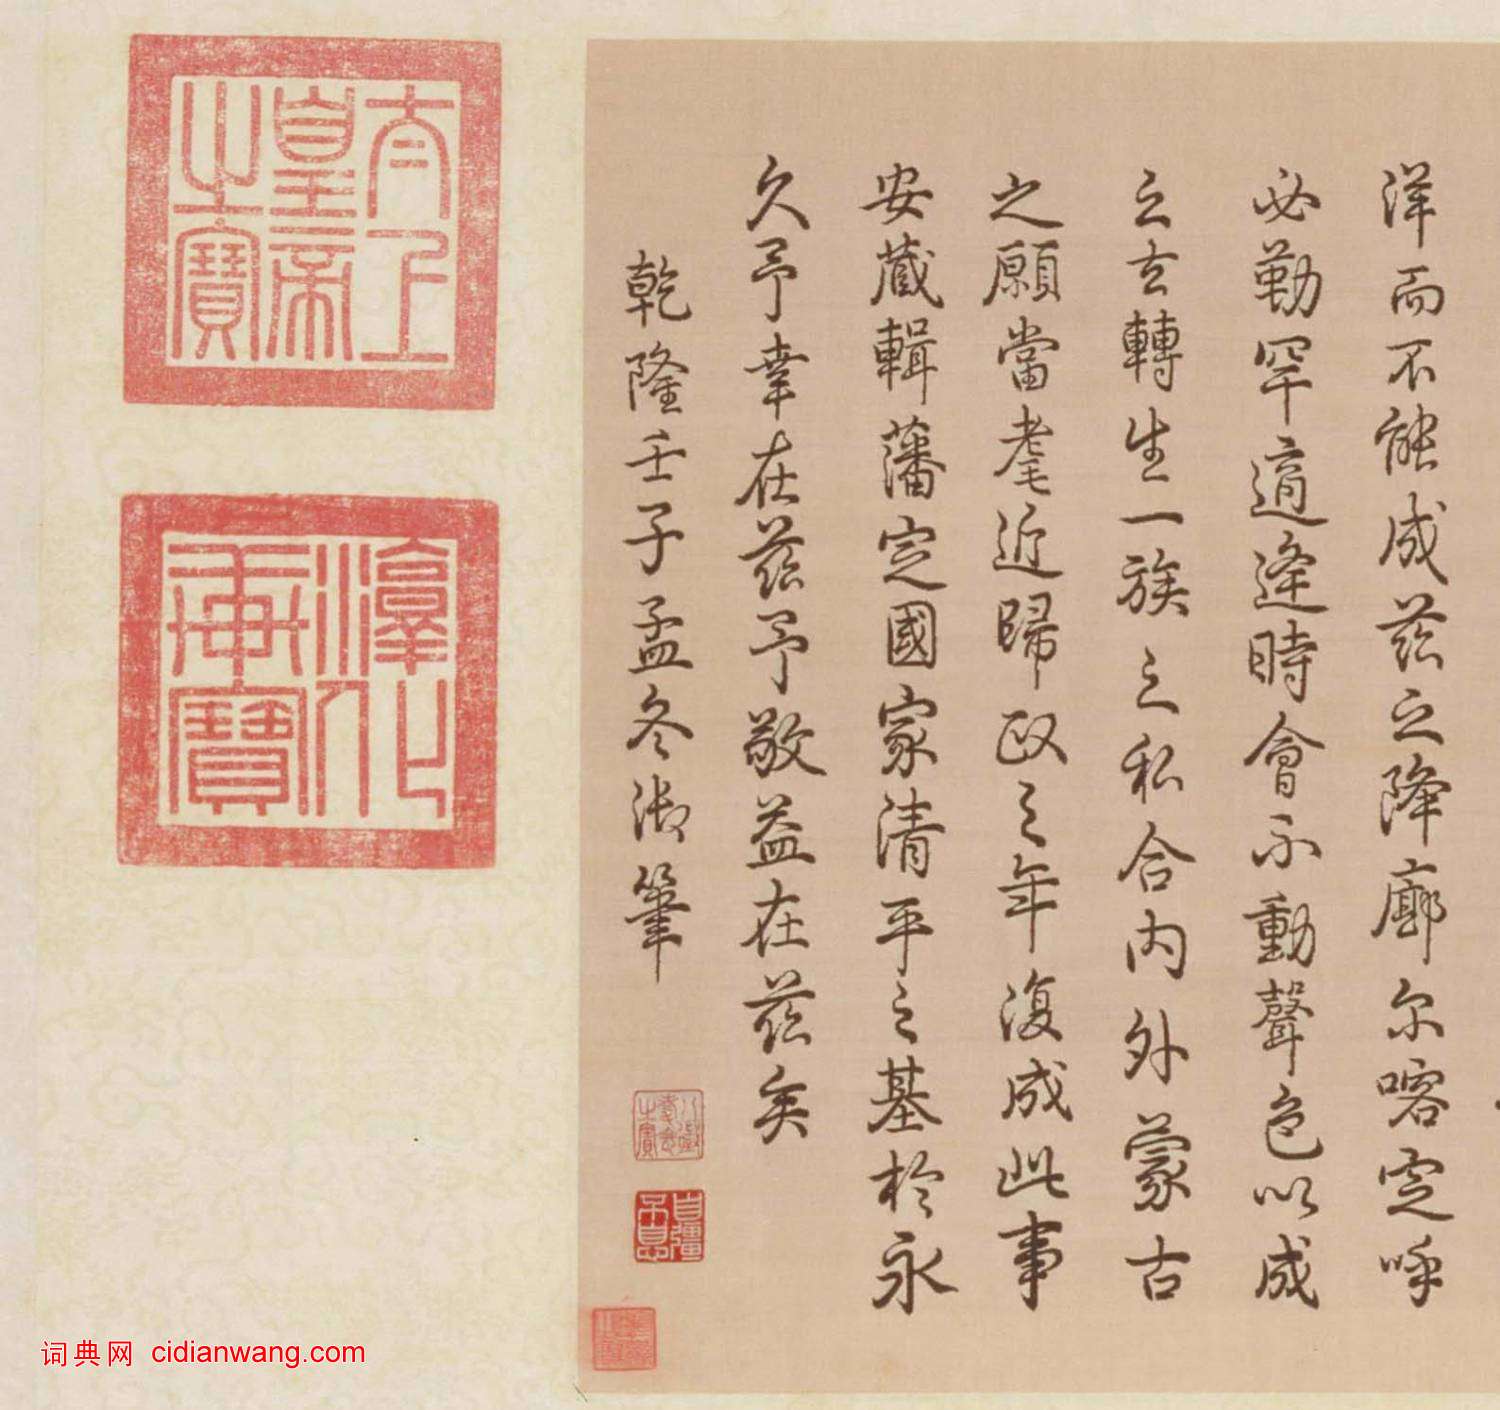 洋而不能成兹之降廓尔喀定呼
必勒罕適逢時會不動聲色以成
之去轉生一族之私合内外蒙古
之願當耄近歸政之年復成此事
安藏輯藩定國家清平之基於永
久予幸在兹予敬益在兹矣
乾隆壬子孟冬御筆
八徵耄念之寶
自彊不息
太上皇帝之寶
淳化軒寶
词典网 cidianwang.com